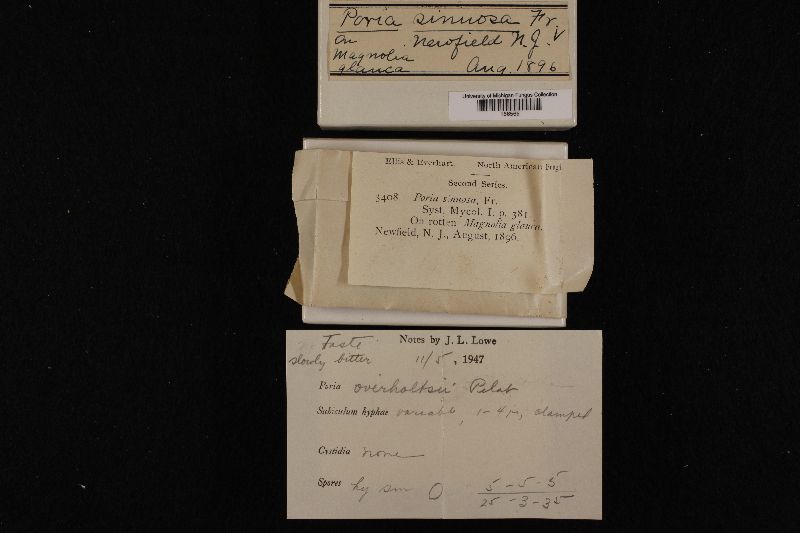 Poria sinuosa Fr.
on Newfield N.J. V
Magnolia
glauca Aug. 1896
University of Michigan Fungus Collection
Ellis & Everhart. North American Fungi.
Second Series.
3408 Poria sinuosa, Fr.
Syst. Mycol. I. p. 381
On rotten Magnolia glauca.
Newfield, N. J., August, 1896.
Taste Notes by J. L. Lowe
slowly bitter 11/5, 1947
Poria overholtsii Pilat
Subiculum hyphae variable, 1-4µ, clamped
Cystidia none
Spores hy sm 5 - 5 - 5
25 - 3 - 35